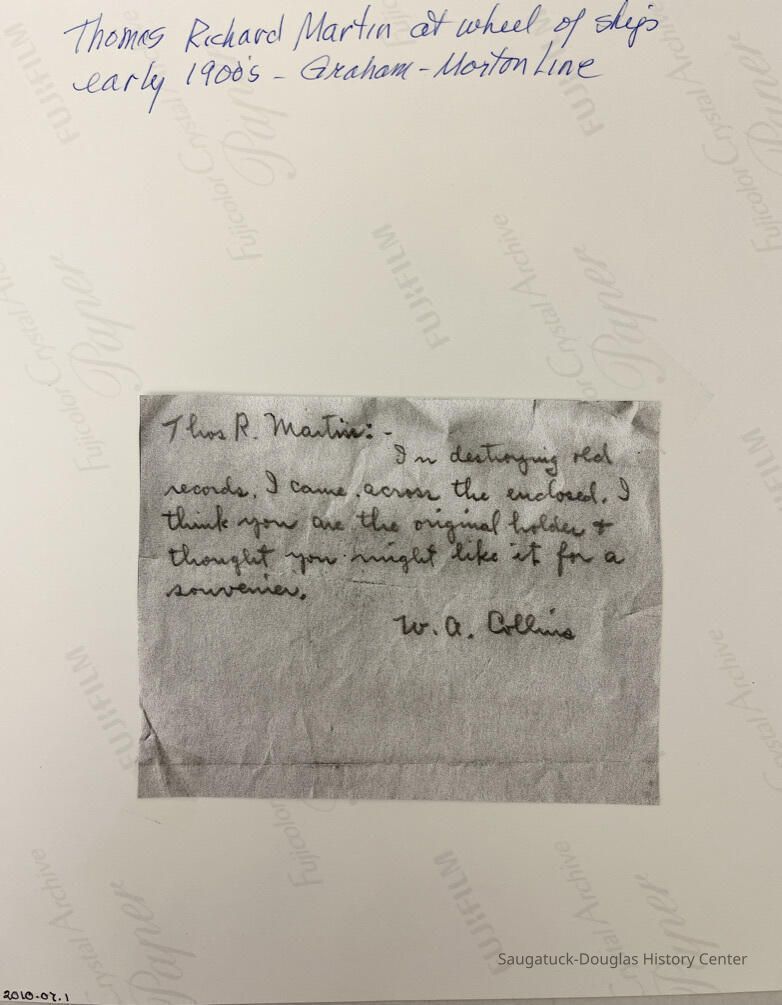 Thomas Richard Martin at wheel of ships
early 1900's - Graham-Morton Line
Thos R. Martin:-
In destroying old
records, I came across the enclosed. I
think you are the original holder &
thought you might like it for a
souvenier.
W. A. Collins
FUJIFILM
Fujicolor Crystal Archive
Paper
Saugatuck-Douglas History Center
2010.07.1